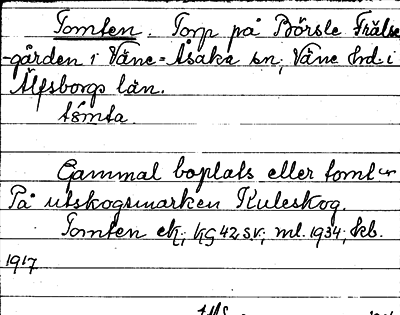 Tomten. Torp på Börsle Frälse
-gården i Väne-Åsaka sn, Väne hrd. i
Älfsborgs län.
tómta.
Gammal boplats eller tomt
På utskogsmarken Kuleskog.
Tomten ek; KG 42 s.v; ml. 1934; kb.
1917